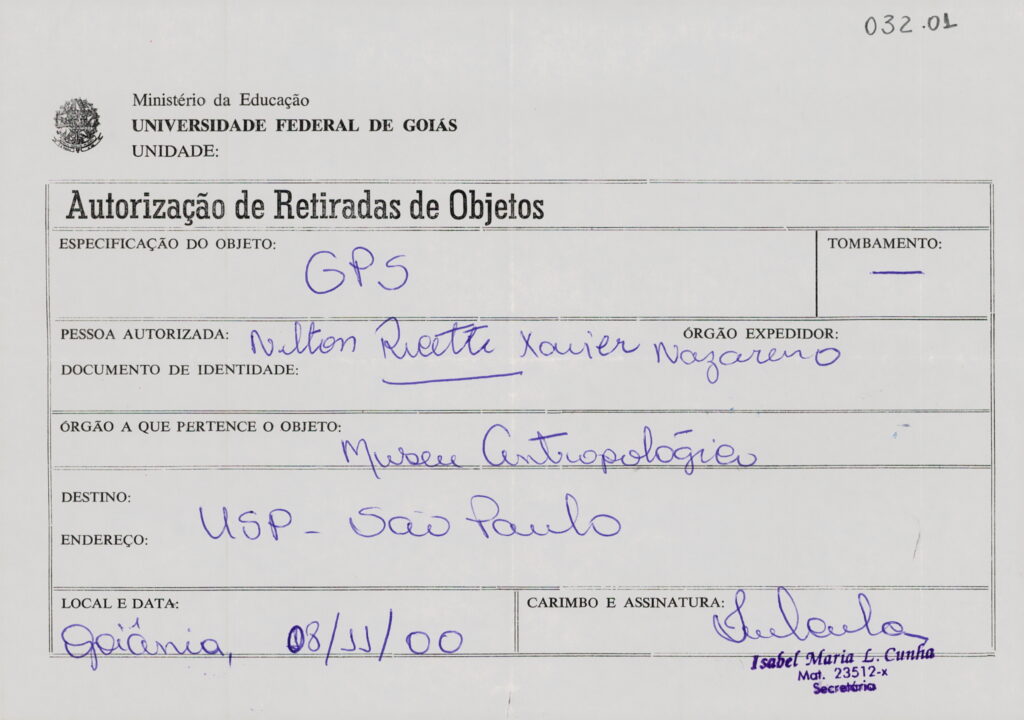 032.01
Ministério da Educação
UNIVERSIDADE FEDERAL DE GOIÁS
UNIDADE:
Autorização de Retiradas de Objetos
ESPECIFICAÇÃO DO OBJETO: GPS
TOMBAMENTO: —
PESSOA AUTORIZADA: Nilton Ricetti Xavier Nazareno
ÓRGÃO EXPEDIDOR:
DOCUMENTO DE IDENTIDADE:
ÓRGÃO A QUE PERTENCE O OBJETO: Museu Antropológico
DESTINO: USP - São Paulo
ENDEREÇO:
LOCAL E DATA: Goiânia, 08/11/00
CARIMBO E ASSINATURA:
Isabel Maria L. Cunha
Mat. 23512-x
Secretária